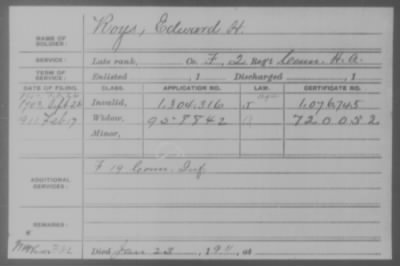 NAME OF SOLDIER: Roys, Edward H.
SERVICE: Late rank, Co. F, 2 Reg't Conn. H.A.
TERM OF SERVICE: Enlisted , 1 Discharged , 1
DATE OF FILING. CLASS. APPLICATION NO. LAW. CERTIFICATE NO.
Invalid, 1.304.316 1.076.745
Widow, 958842 720.052
Minor,
ADDITIONAL SERVICES: F 19 Conn. Inf.
REMARKS:
Died Jan 23, 1911, at